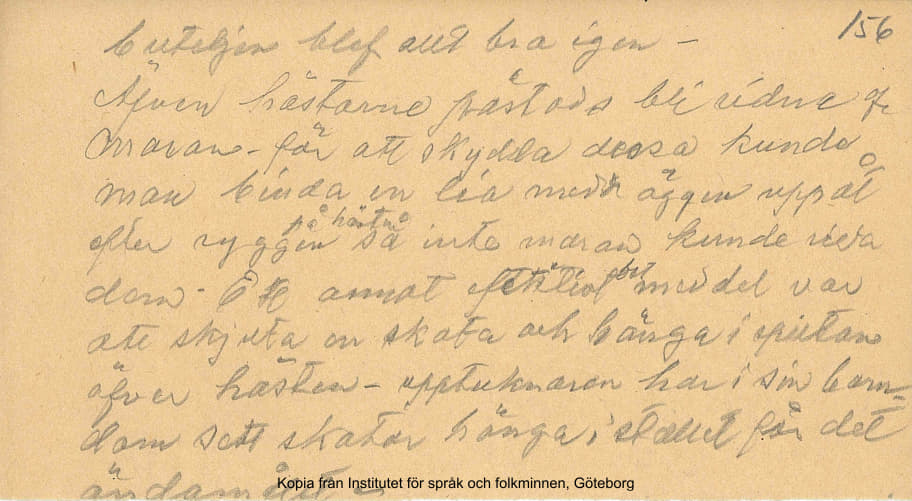 156
buteljen blef allt bra igen –
Äfven hästarne påstods bli ridne af
maran – för att skydda dessa kunde
man binda en lia med äggen uppåt
efter ryggen på hästen så inte maran kunde rida
dem – Ett annat effektivt bot medel var
att skjuta en skata och hänga i spiltan
öfver hästen – upptecknaren har i sin barn=
dom sett skator hänga i stallet för det
ändamålet –
Kopia från Institutet för språk och folkminnen, Göteborg